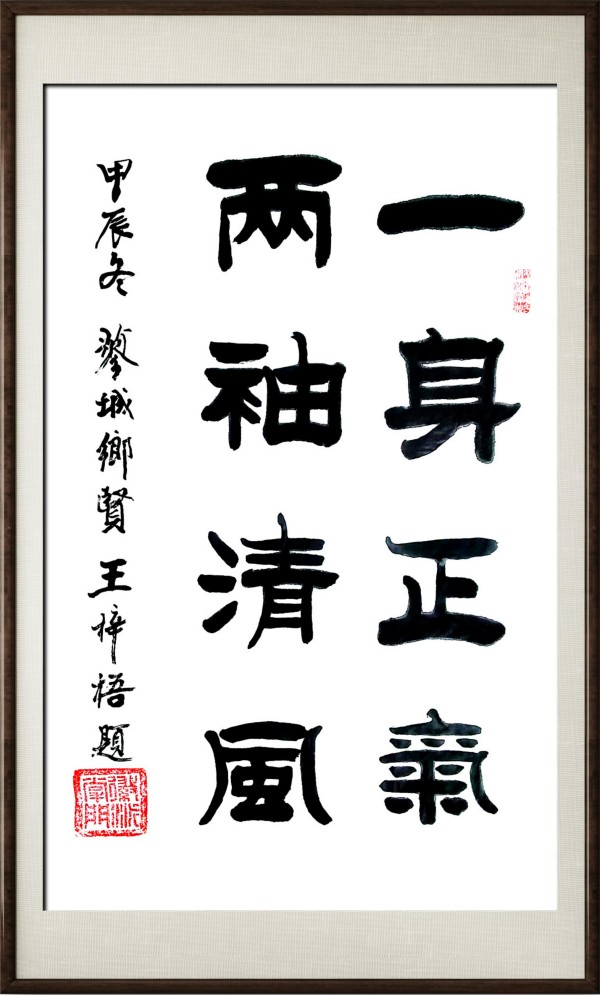 一身正氣
两袖清風
甲辰冬 鄉賢王梓梧題